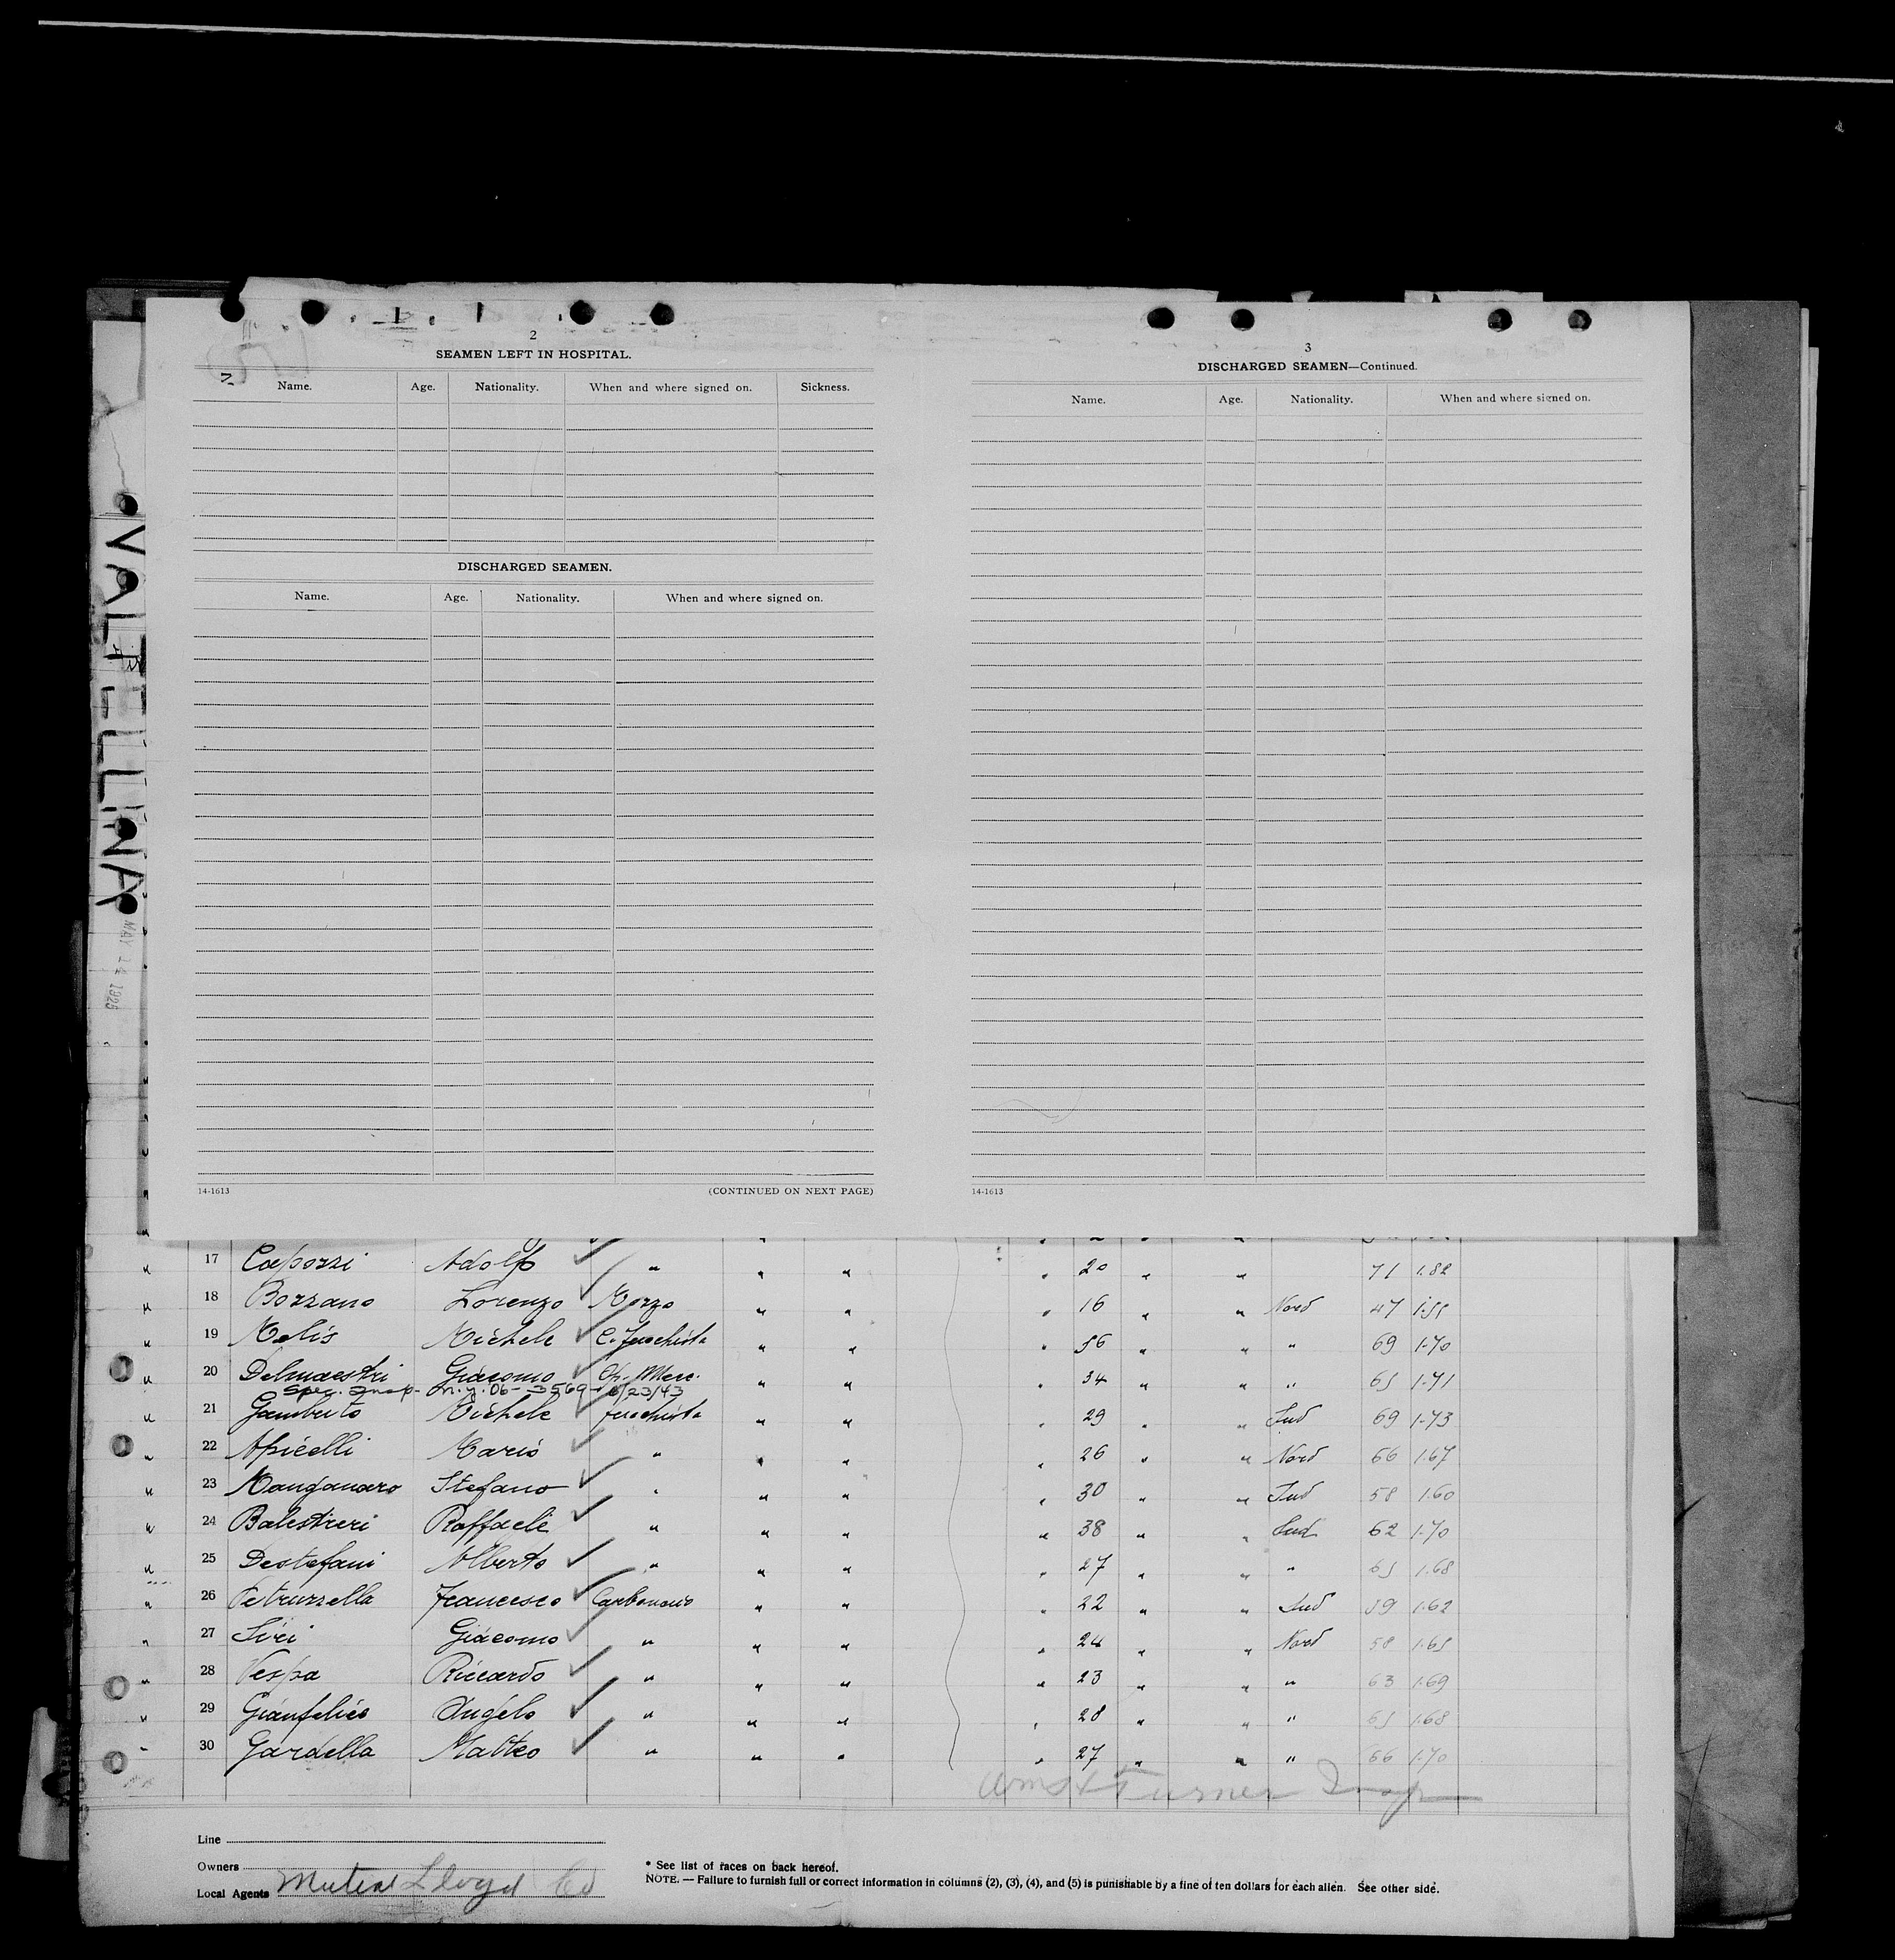 VALTELLINA
MAY 14 192
2
SEAMEN LEFT IN HOSPITAL.
Name. Age. Nationality. When and where signed on. Sickness.
DISCHARGED SEAMEN.
Name. Age. Nationality. When and where signed on.
14-1613 (CONTINUED ON NEXT PAGE)
3
DISCHARGED SEAMEN—Continued.
Name. Age. Nationality. When and where signed on.
14-1613
" 17 Capozzi Adolfo " " " " 20 " " 71 1.82
" 18 Bozzano Lorenzo Mozzo " " " 16 " " Nord 47 1.55
" 19 Melis Michele C. Fuochista " " " 56 " " " 69 1.70
" 20 Delmaestri Giacomo Op. Mecc. " " " 34 " " " 65 1.71
Spec. Insp. N.Y. 06-3569- 6/23/43
" 21 Gamberto Michele Fuochista " " " 29 " " Sud 69 1.73
" 22 Apicelli Mario " " " " 26 " " Nord 66 1.67
" 23 Manganaro Stefano " " " " 30 " " Sud 58 1.60
" 24 Balestreri Raffaele " " " " 38 " " Sud 62 1.70
" 25 Destefani Alberto " " " " 27 " " " 65 1.68
" 26 Petruzzella Francesco Carbonaio " " " 22 " " Sud 59 1.62
" 27 Siri Giacomo " " " " 24 " " Nord 58 1.65
" 28 Vespa Riccardo " " " " 23 " " " 63 1.69
" 29 Gianfelice Angelo " " " " 28 " " " 65 1.68
" 30 Gardella Matteo " " " " 27 " " " 66 1.70
Turner Insp
Line
Owners
Local Agents Lloyd Co
* See list of races on back hereof.
NOTE. — Failure to furnish full or correct information in columns (2), (3), (4), and (5) is punishable by a fine of ten dollars for each alien. See other side.